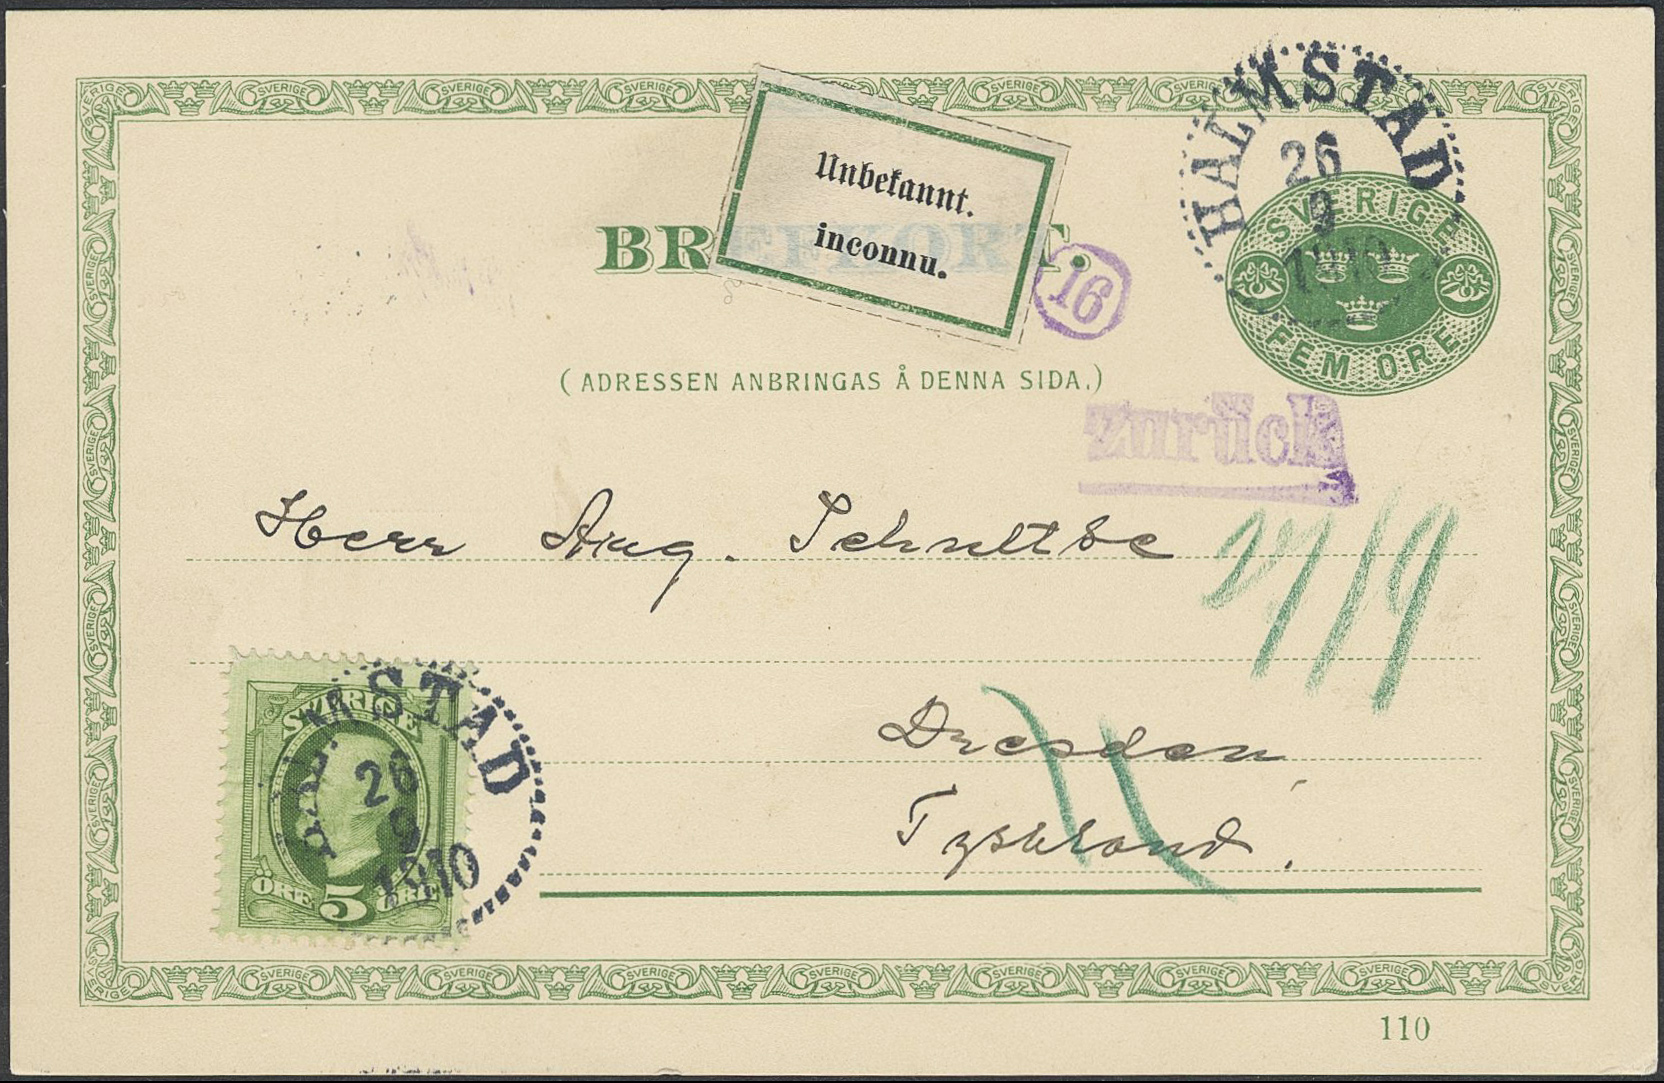 HALMSTAD
26
9
1910
SVERIGE
FEM ÖRE
BREFKORT.
Unbekannt.
inconnu.
16
(ADRESSEN ANBRINGAS Å DENNA SIDA.)
zurück
Herr Aug. Schultze
27/9
Dresden
Tyskland.
SVERIGE
ÖRE 5 ÖRE
HALMSTAD
26
9
1910
110